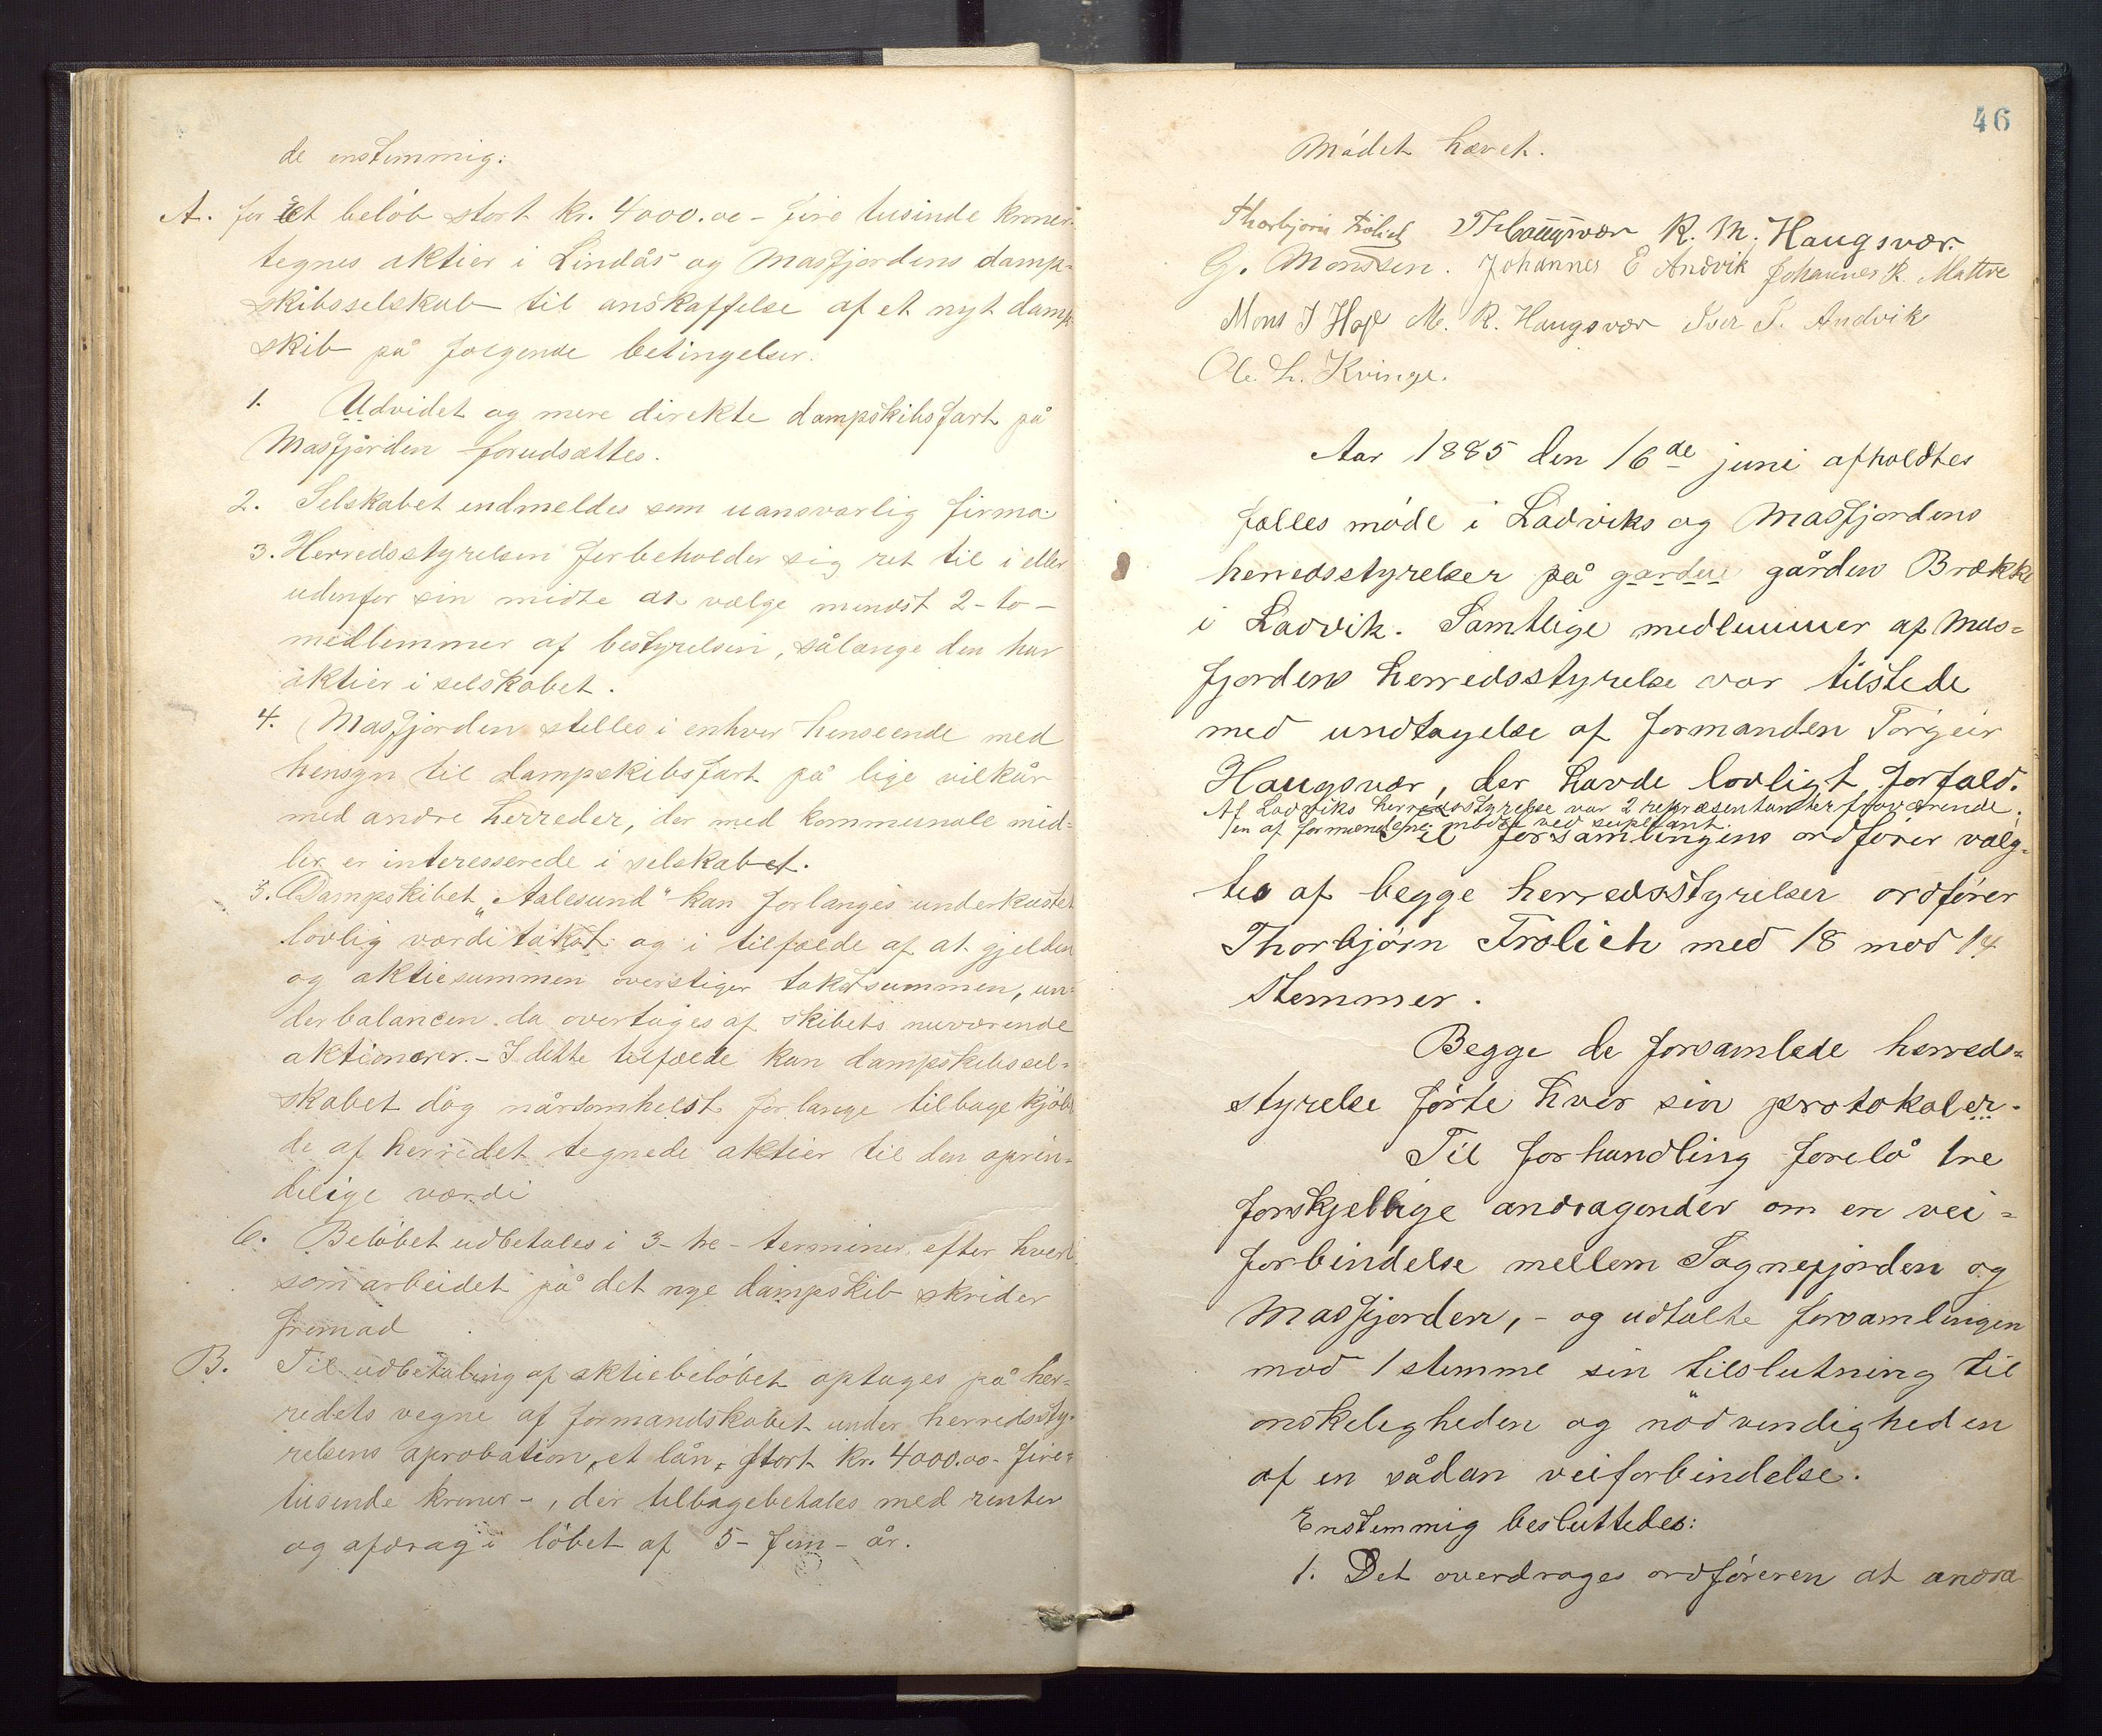 de enstemmig:
A. for Et beløb stort kr. 4000.00 - fire tusinde kroner -
tegnes aktier i Lindås og Masfjordens damp-
skibsselskab til anskaffelse af et nyt damp-
skib på følgende betingelser.
1. Udvidet og mere direkte dampskibsfart på
Masfjorden forudsættes.
2. Selskabet endmeldes som uansvarlig firma
3. Herredsstyrelsen forbeholder sig ret til i eller
udenfor sin midte at vælge mindst 2 - to -
medlemmer af bestyrelsen, sålænge den har
aktier i selskabet.
4. Masfjorden stilles i enhver henseende med
hensyn til dampskibsfart på lige vilkår
med andre herreder, der med kommunale mid-
ler er interesserede i selskabet.
5. Dampskibet "Aalesund" kan forlanges underkastet
lovlig værditakst og i tilfælde af at gjelden
og aktiesummen overstiger takstsummen, un-
derbalancen da overtages af skibets nuværende
aktionærer. - I dette tilfælde kan dampskibssel-
skabet dog nårsomhelst forlange tilbagekjøbt
de af herredet tegnede aktier til den oprin-
delige værdi
6. Beløbet udbetales i 3 - tre - terminer efter hvert
som arbeidet på det nye dampskib skrider
fremad
B. Til udbetaling af aktiebeløbet optages på her-
redets vegne af formandskabet under herredssty-
relsens aprobation, et lån, stort kr. 4000.00 - fire-
tusende kroner -, der tilbagebetales med renter
og afdrag i løbet af 5 - fem - år.
46
Mødet hævet.
Thorbjørn Frølich T Haugsvær R. M. Haugsvær.
G. Monssen. Johannes E Andvik Johannes K. Matre
Mons I Hop M. R. Haugsvær Iver I. Andvik
Ole L. Kvinge.
Aar 1885 den 16de juni afholdtes
fælles møde i Ladviks og Masfjordens
herredsstyrelser på garden gården Brække
i Ladvik. Samtlige medlemmer af Mas-
fjordens herredsstyrelse var tilstede
med undtagelse af formanden Torgeir
Haugsvær, der havde lovligt forfald.
Af Ladviks herredsstyrelse var 2 repræsentanter fraværende.
/en af formændene mødte ved supleant.
Til forsamlingens ordfører valg-
tes af begge herredsstyrelser ordfører
Thorbjørn Frølich med 18 mod 14
stemmer.
Begge de forsamlede herreds-
styrelse førte hver sin protokoler.
Til forhandling forelå tre
forskjellige andragender om en vei-
forbindelse mellem Sognefjorden og
Masfjorden, - og udtalte forsamlingen
mod 1 stemme sin tilslutning til
ønskeligheden og nødvendigheden
af en sådan veiforbindelse.
Enstemmig besluttedes:
1. Det overdrages ordføreren at andra